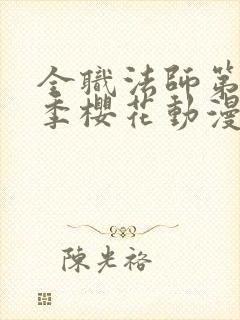 全職法師第
季櫻花動漫
陳光裕